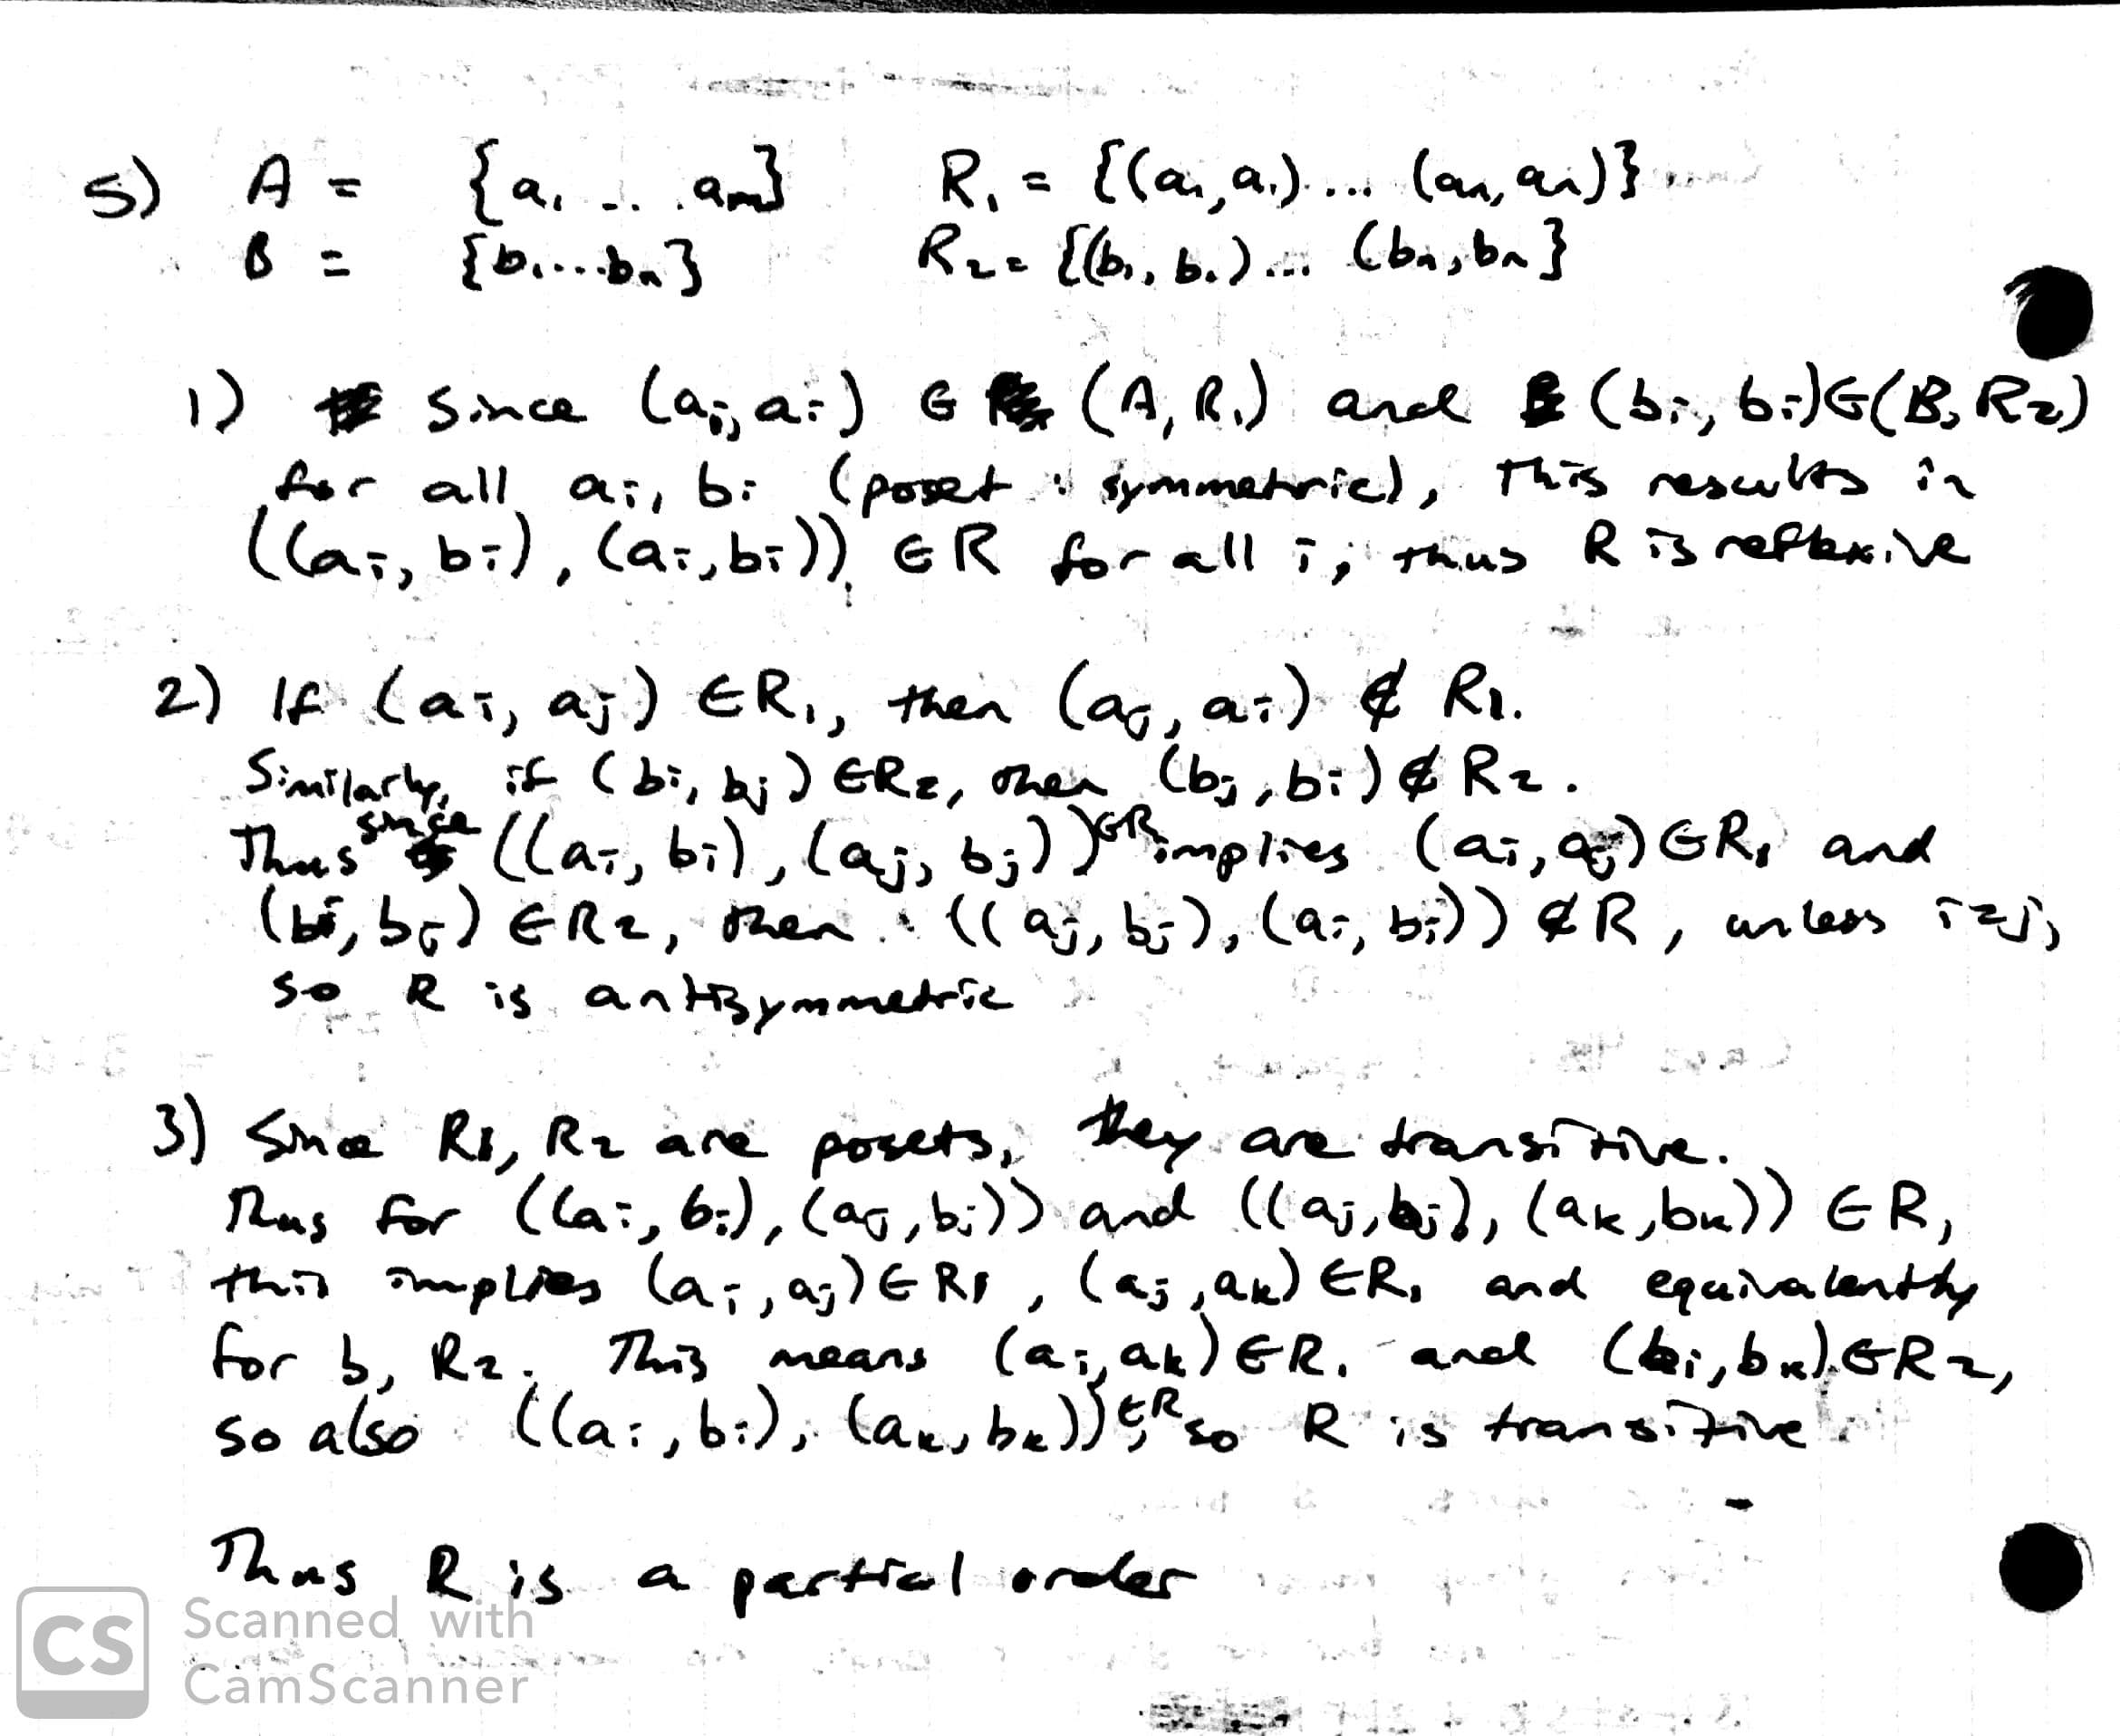 5) A = {a₁ ... aₘ} R₁ = {(a₁,a₁) ... (aₙ,aₙ)}
B = {b₁...bₙ} R₂ = {(b₁, b₁) ... (bₙ,bₙ}
1) Since (aᵢ, aᵢ) ∈ (A, R₁) and (bᵢ, bᵢ)∈(B, R₂)
for all aᵢ, bᵢ (poset : symmetric), this results in
((aᵢ, bᵢ), (aᵢ,bᵢ)) ∈R for all i, thus R is reflexive
2) If (aᵢ, aⱼ) ∈R₁, then (aⱼ, aᵢ) ∉ R₁.
Similarly, if (bᵢ, bⱼ) ∈R₂, then (bⱼ, bᵢ) ∉ R₂.
Thus since ((aᵢ, bᵢ), (aⱼ, bⱼ))∈R implies (aᵢ, aⱼ)∈R₁ and
(bᵢ, bⱼ) ∈R₂, then ((aⱼ, bⱼ), (aᵢ, bᵢ)) ∉R, unless i=j,
so R is antisymmetric
3) Since R₁, R₂ are posets, they are transitive.
Thus for ((aᵢ, bᵢ), (aⱼ, bⱼ)) and ((aⱼ, bⱼ), (aₖ, bₖ)) ∈R,
this implies (aᵢ, aⱼ)∈R₁, (aⱼ, aₖ) ∈R₁ and equivalently
for b, R₂. This means (aᵢ, aₖ)∈R₁ and (bᵢ, bₖ)∈R₂,
so also ((aᵢ, bᵢ), (aₖ, bₖ))∈R, so R is transitive.
Thus R is a partial order
CS Scanned with
CamScanner